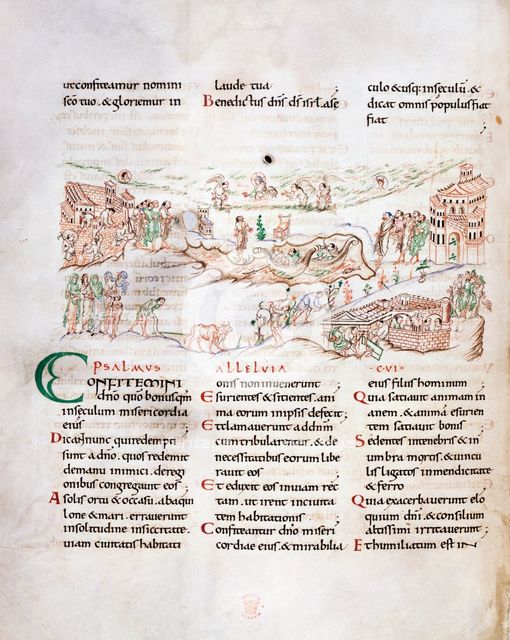 ut confiteamur nomini
sc̄o tuo. & gloriemur in
laude tua ;
Benedictus dn̄s dr̄ isrl. ase
culo & usq: inseculū. &
dicat omnis populus fiat
fiat ;
PSALMUS ALLELUIA CUI·
CONFITEMINI
dn̄o quo bonusqm̄
insęculum misericordia
eius ;
Dicaɴ nunc quiredempti
sunt adn̄o. quos redemit
demanu inimici. deregi
onibus congregauit eos ;
Asolis ortu & occasu. abaqui
lone & mari. errauerunt
insolitudine insiccitate.
uiam ciuitatis habitati
onis noninuenerunt ;
Esurientes & sitientes. ani
ma eorum inipsis defecit ;
Et clamauerunt addnm̄
cum tribularentur. & de
necessitatibus eorum libe
rauit eos
Et eduxit eos inuiam rec
tam. ut irent inciuita
tem habitationis ;
Confiteantur dn̄o miseri
cordiae eius. & mirabilia
eius filiis hominum
Quia satiauit animam in
anem. & animā esurien
tem satiauit bonis
Sedentes intenebris & in
umbra mortis. & uincu
lis ligatos inmendicitate
& ferro
Quia exacerbauerunt elo
quium dn̄i. & consilium
altissimi irritauerunt ;
Ethumiliatum est iɴ